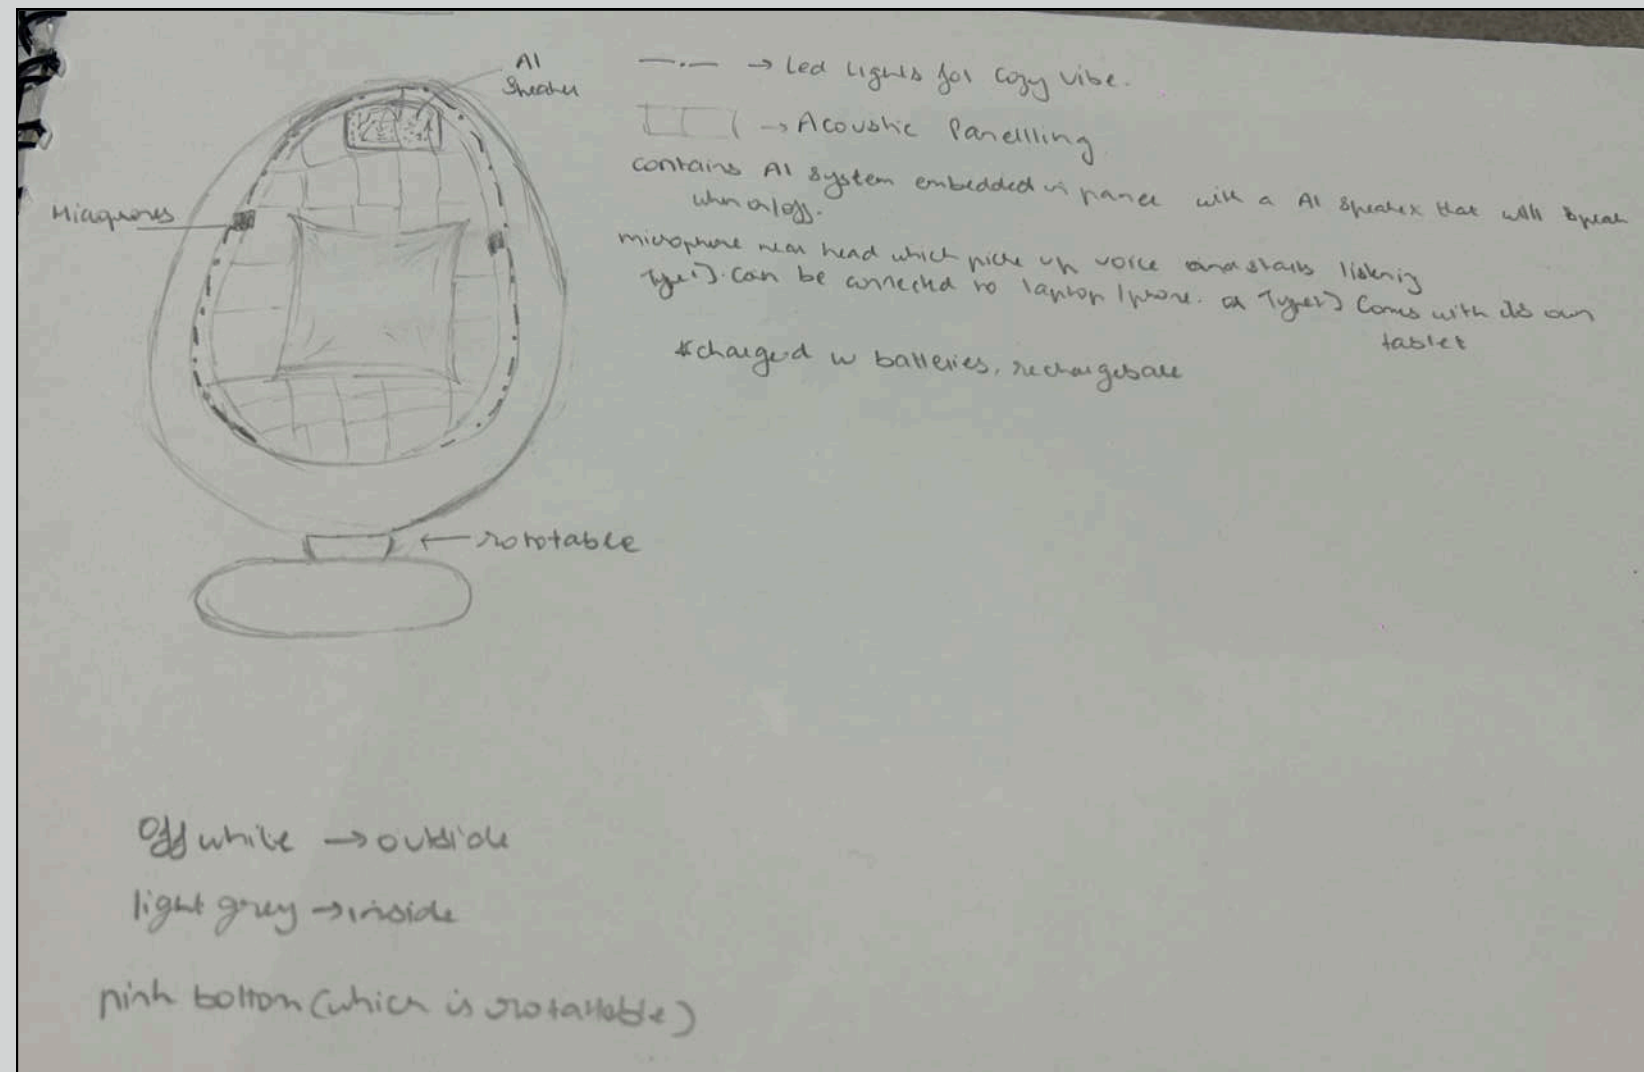 AI
Speaker
→ Led lights for cozy vibe.
→ Acoustic Panellling
contains AI system embedded in panel with a AI speaker that will speak
when on/off.
Micophones
microphone near head which picks up voice and starts listening
Type 1) Can be connected to laptop / phone. or Type 2) Comes with its own
tablet
*charged w batteries, rechargebale
← rototable
Off white → outside
light grey → inside
pink bottom (which is rotatable)